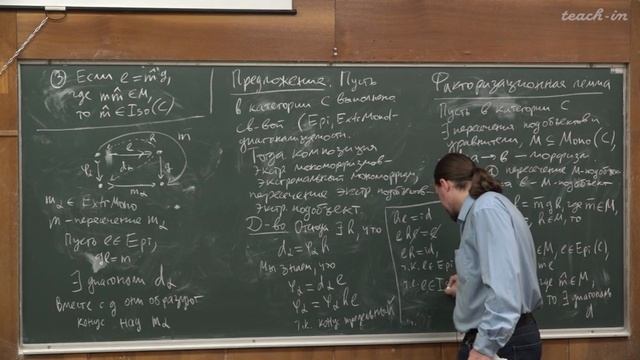 teach-in
③ Если e = m̂g,
где m m̂ ∈ M,
то m̂ ∈ Iso(C)
m
e
d₂
m₂
m₂ ∈ ExtrMono
m - пересечение m₂
Пусть e ∈ Epi,
ge = m
∃ диагональ d₂
Вместе с g они образуют
конус над m₂
Предложение. Пусть
в категории C выполнено
св-во (Epi, ExtrMono)-
диагонализируемости.
Тогда композиция
экстр. мономорфизмов -
экстремальный мономорфизм,
пересечение экстр. подобъектов -
экстр. подобъект.
Д-во Отсюда ∃ h, что
d₂ = φ₂h
Мы знаем, что
φ₂ = d₂e
φ₂ = φ₂he
т.к. конус предельный
he = id
ehe = e
eh = id,
т.к. e ∈ Epi
т.е. e ∈ Is
Факторизационная лемма
Пусть в категории C
∃ пересечения подобъектов и
уравнители, M ⊆ Mono(C),
a → b - морфизм.
пересечение M-подобъ
- M-подобъект
где m ∈ M,
∈ M, то
∈ M, e ∈ Epi(C),
где m ∈ M,
то ∃ диагональ
d